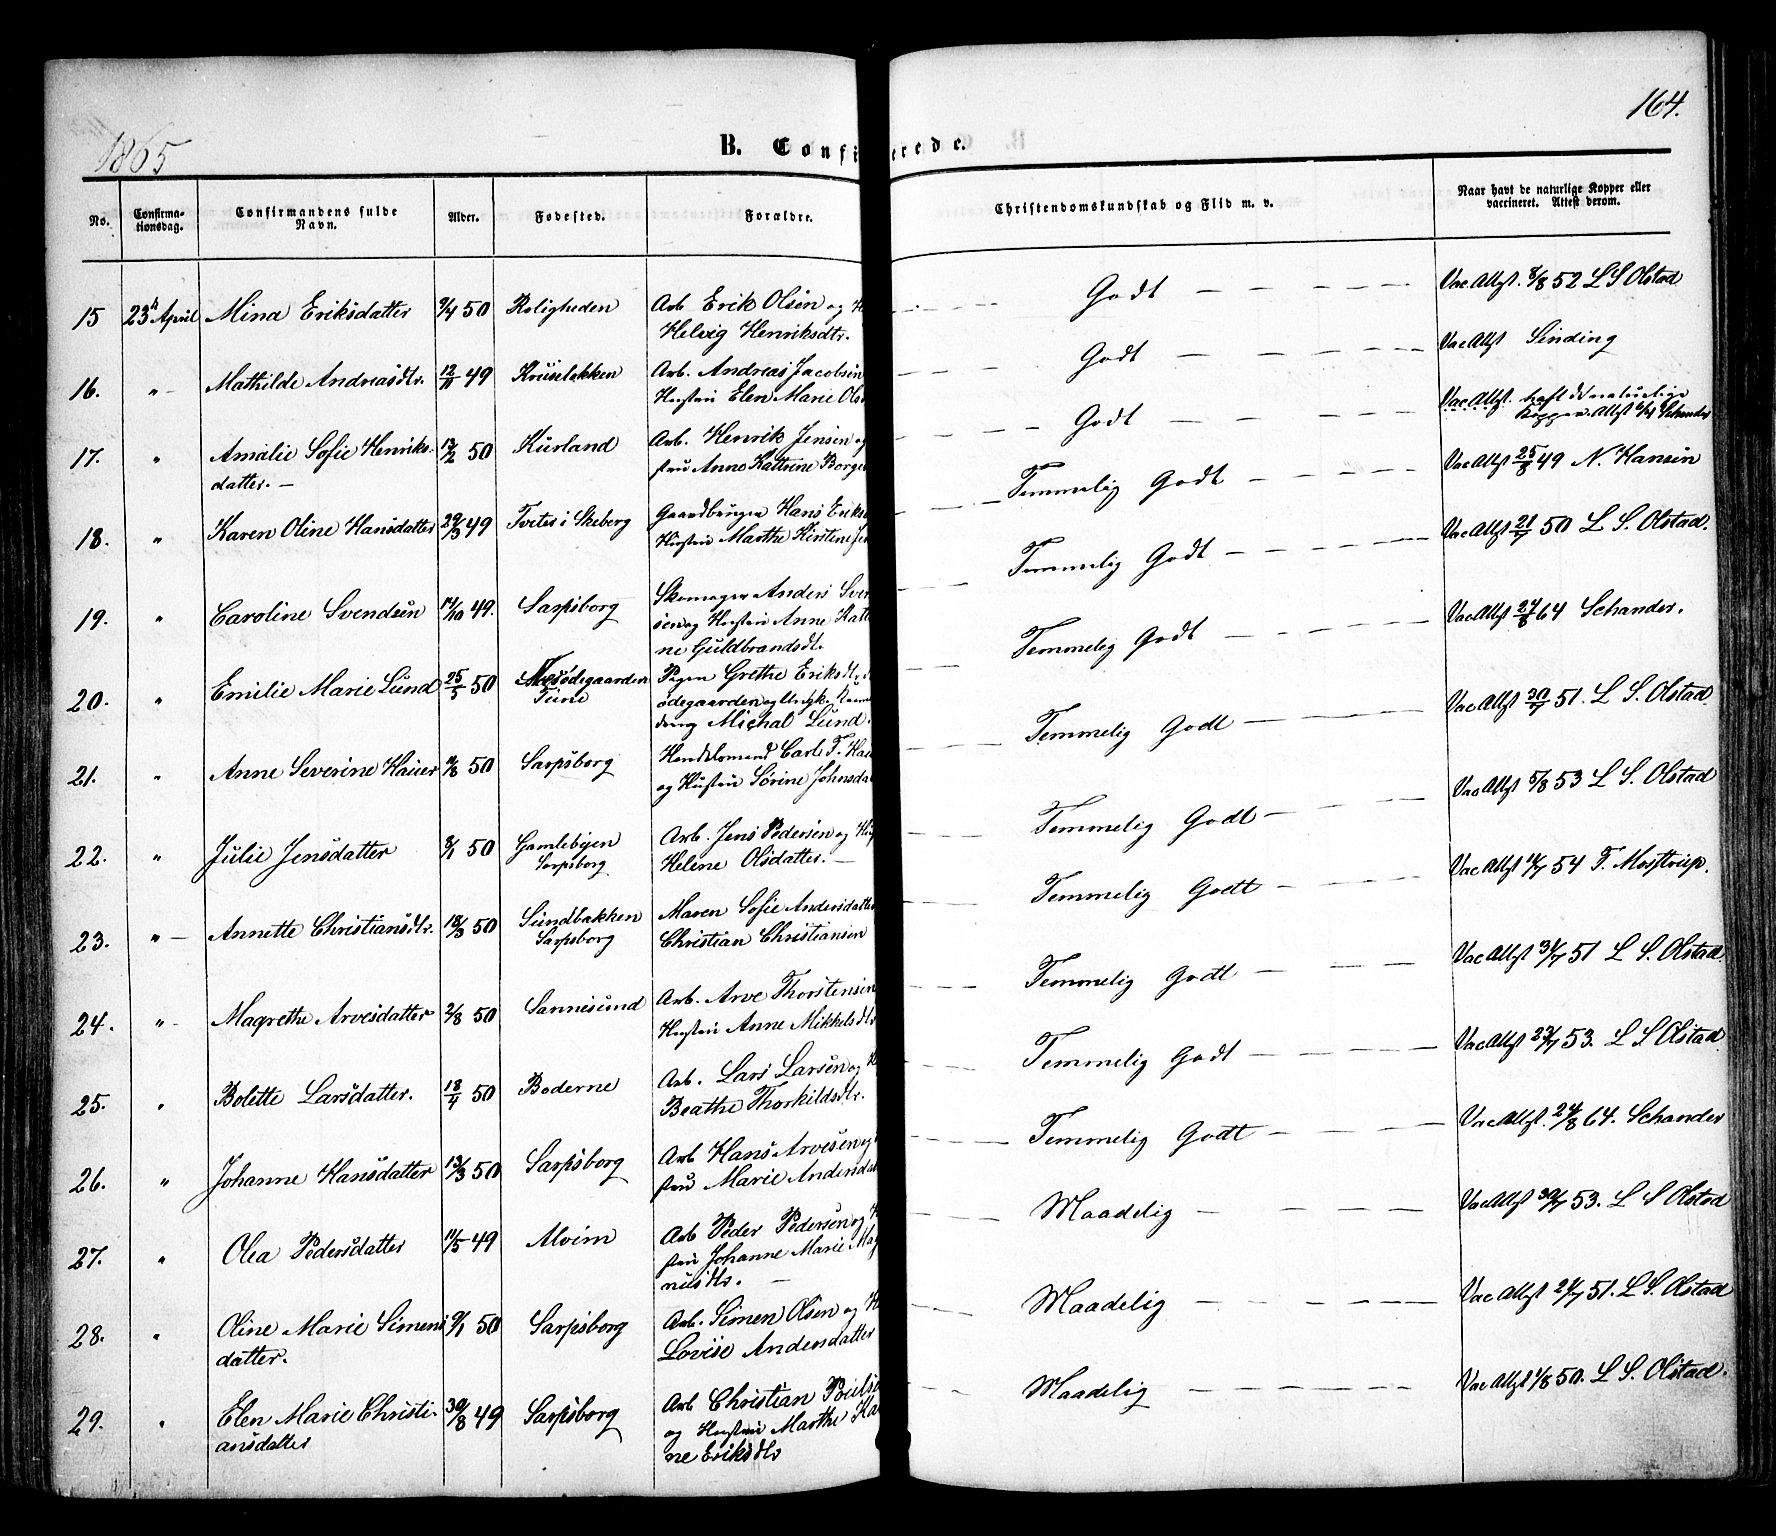 164.
1865
B. Confi erede.
No. Confirma-tionsdag. Confirmandens fulde Navn. Alder. Fødested. Forældre. Christendomskundskab og Flid m. v. Naar havt de naturlige Kopper eller vaccineret. Attest derom.
15 23de April Mina Eriksdatter 9/4 50 Roligheden Arb Erik Olsen og H Godt Vac Attst. 8/8 52 L S Olstad
Helvig Henriksdtr.
16. " Mathilde Andreasdtr. 12/11 49 Kruseløkken Arb. Andreas Jacobsen Godt Vac Attst Sinding
Hustru Elen Marie Ols
17. " Amalie Sofie Henriks- 13/2 50 Kurland Arb. Henrik Jensen og Godt Vac Attst. haft de naturlige
datter. stru Anne Kattrine Borge Kopper. Attst Schander
18. " Karen Oline Hansdatter 29/3 49 Tveter i Skeberg Gaardbruger Hans Eriks Temmelig Godt Vac Attst 25/8 49 N. Hansen
Hustru Marthe Kirstine Je
19. " Caroline Svendsen 14/10 49. Sarpsborg Skomager Anders Sven Temmelig Godt Vac Attst 21/7 50 L. S. Olstad.
sen og Hustru Anne Katt
ne Guldbrandsdt.
20. " Emilie Marie Lund 25/5 50 ødegaarden Pigen Grethe Eriksdt. Temmelig Godt Vac Attst 24/8 64 Schander.
Tune ødegaarden og Ungk.
Michal Lund.
21. " Anne Severine Hauer 9/8 50 Sarpsborg Handelsmand Carl F. Hau Temmelig Godt Vac Attst 30/7 51. L. S. Olstad
og Hustru Sørine Johnsda
22. " Julie Jensdatter 8/1 50 Gamlebyen Arb. Jens Pedersen og Hus Temmelig Godt Vac Attst 5/8 53 L S. Olstad
Sarpsborg Helene Olsdatter.
23. " Annette Christiansdtr. 18/3 50 Sundbakken Maren Sofie Andersdatter Temmelig Godt Vac Attst 11/7 54 F.
Sarpsborg Christian Christiansen
24. " Magrethe Arvesdatter 2/8 50 Sannesund Arb. Arve Thorstensen Temmelig Godt Vac Attst 31/7 51 L S. Olstad.
Hustru Anne Mikkelsdtr
25. " Bolette Larsdatter. 18/4 50 Boderne Arb. Lars Larsen og H Temmelig Godt Vac Attst 23/7 53. L S Olstad
Beathe Thorkildsdtr.
26. " Johanne Hansdatter 13/3 50 Sarpsborg Arb Hans Arvesen og Temmelig Godt Vac Attst. 24/8 64. Schander
stru Marie Andersdat
27. " Olea Pedersdatter 11/5 49 Alvim Arb Peder Pedersen og H Maadelig Vac Attst 30/7 53. L S Olstad
stru Johanne Marie Mag
nusdtr.
28. " Oline Marie Simens 9/1 50 Sarpsborg Arb. Simen Olsen og H Maadelig Vac Attst 21/7 51. L S. Olstad
datter. Lovise Andersdatter
29. " Elen Marie Christi- 30/8 49 Sarpsborg Arb Christian Poulse Maadelig Vac Attst 1/8 50. L S. Olstad.
ansdatter og Hustru Marthe Ka
ne Eriksdtr